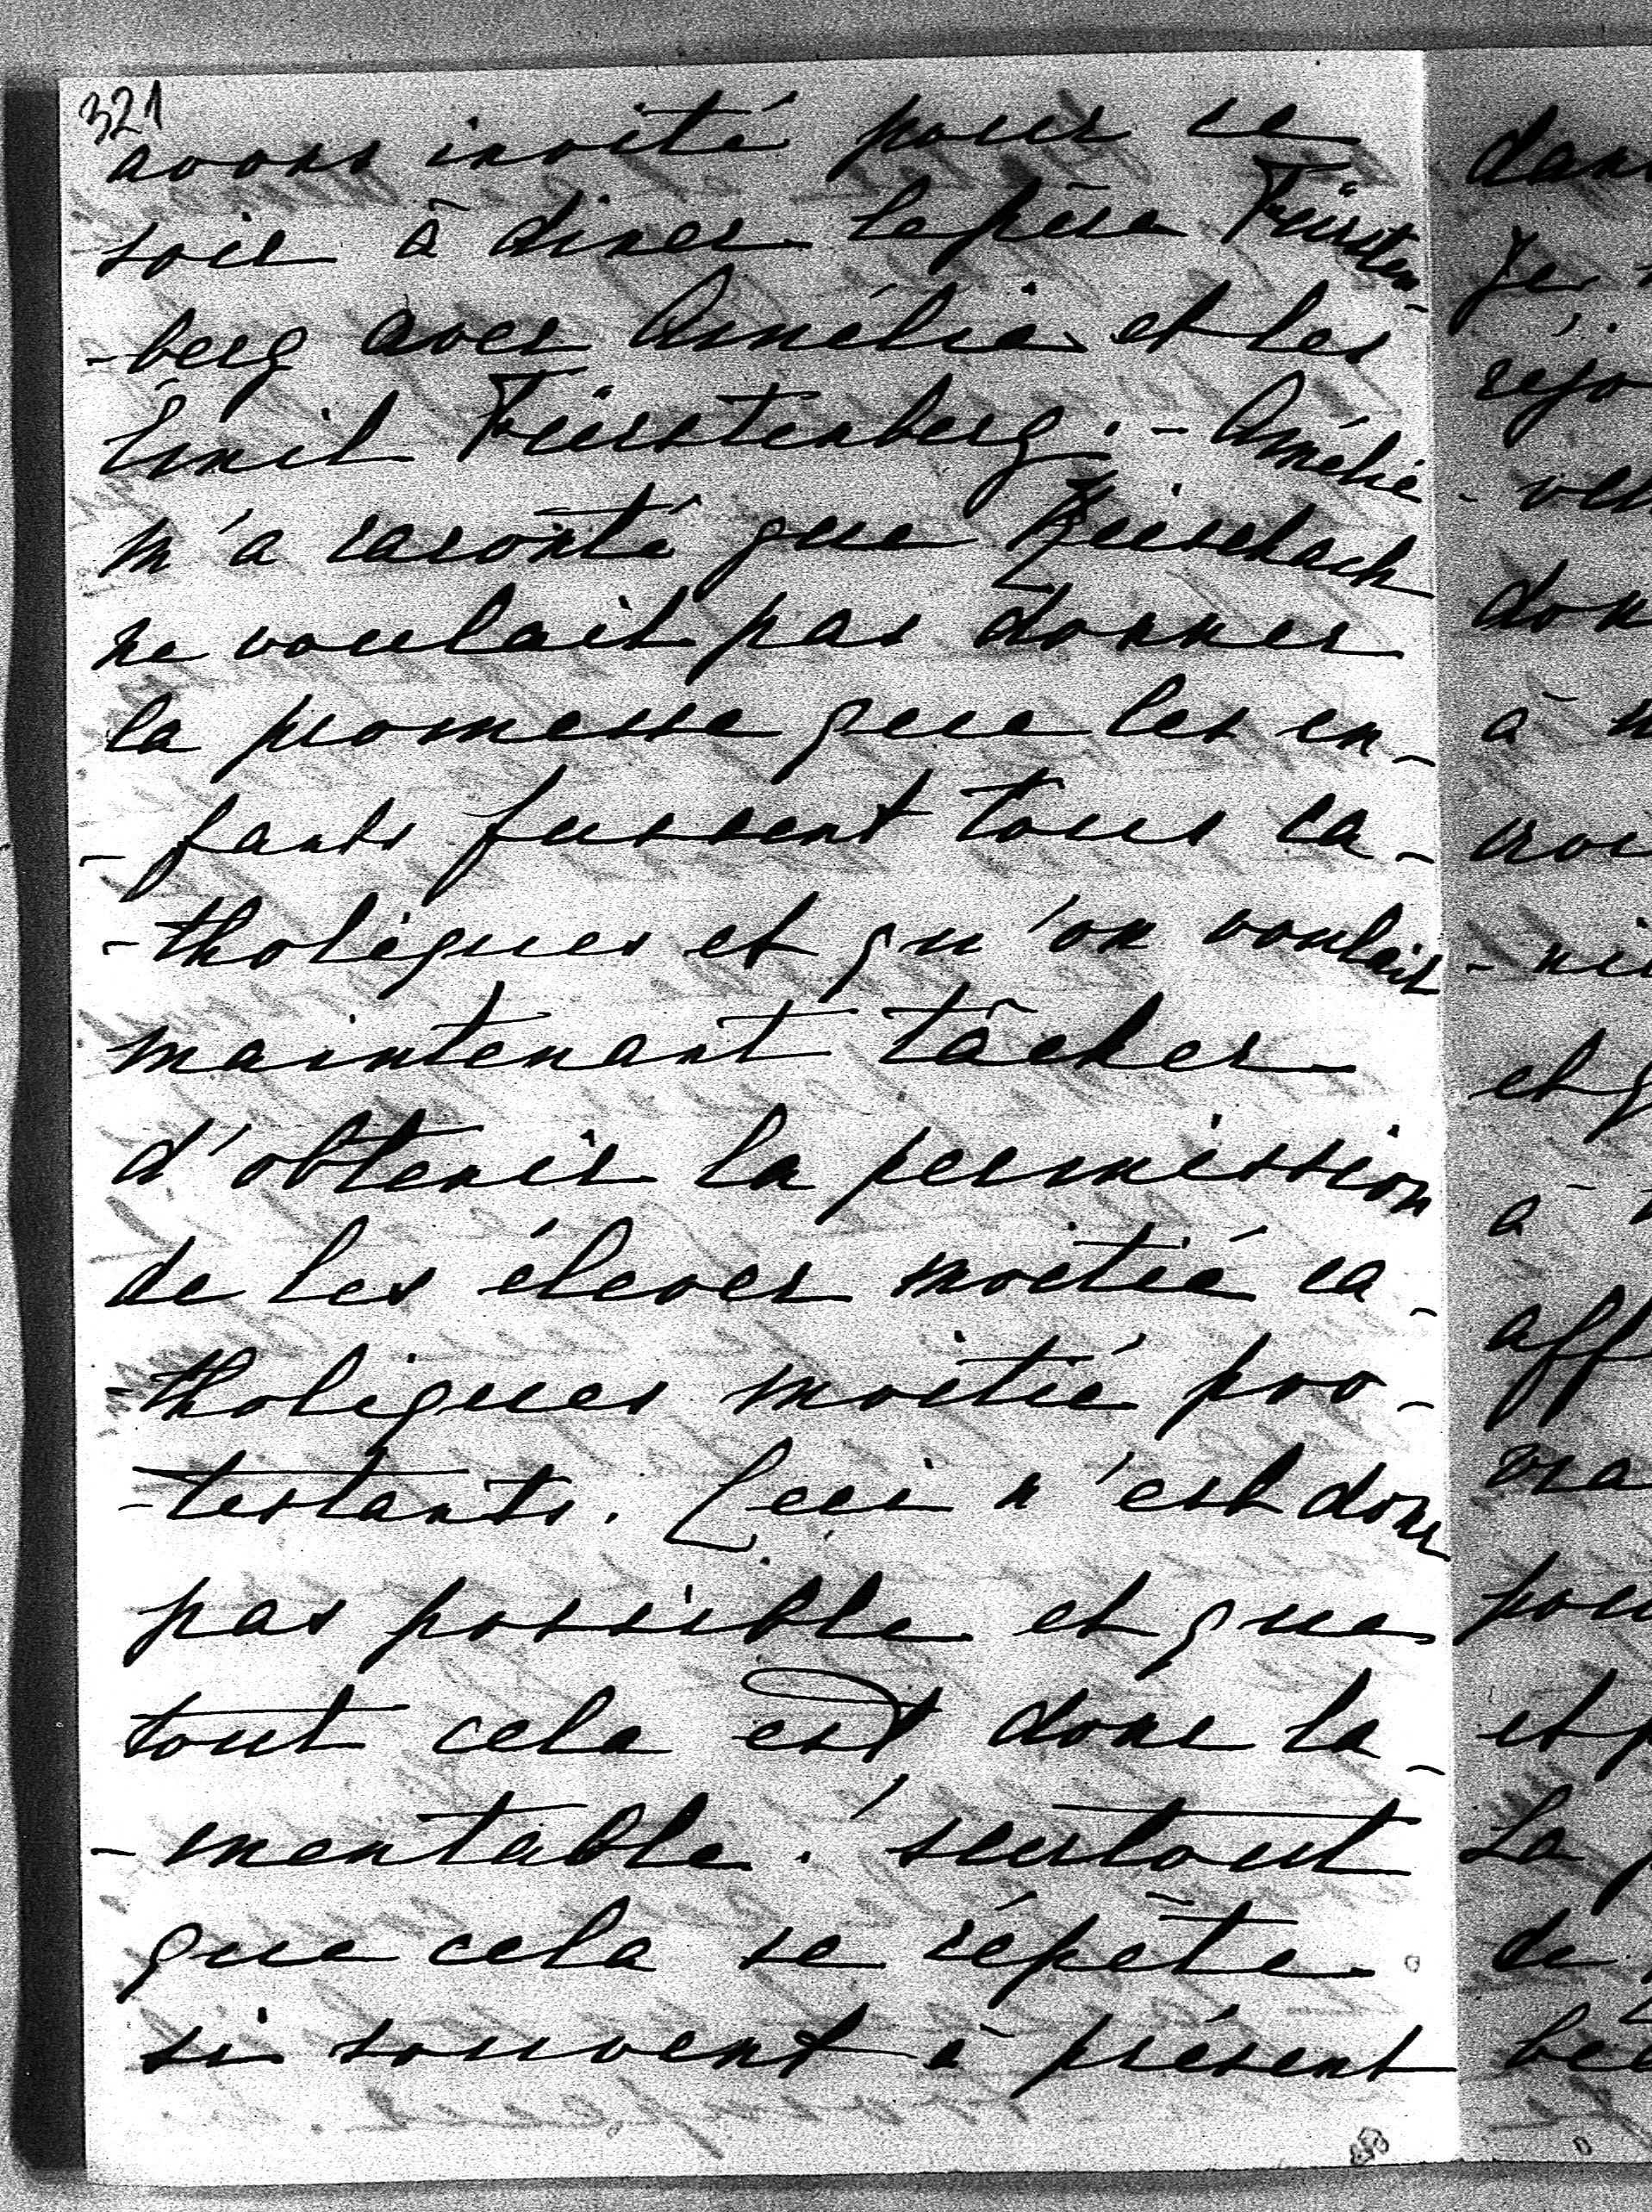 321
avons invité pour ce
soir à diner le père Fürsten-
-berg avec Amélie et les
Emil Fürstenberg. - Amélie
m'a raconté que
ne voulait pas donner
la promesse que les en-
-fants fussent tous ca-
-tholiques et qu'on voulait
maintenant tâcher
d'obtenir la permission
de les élever moitié ca-
tholiques moitié pro-
-testants. Ceci n'est donc
pas possible et que
tout cela est donc la-
-mentable! surtout
que cela se répète
si souvent à présent